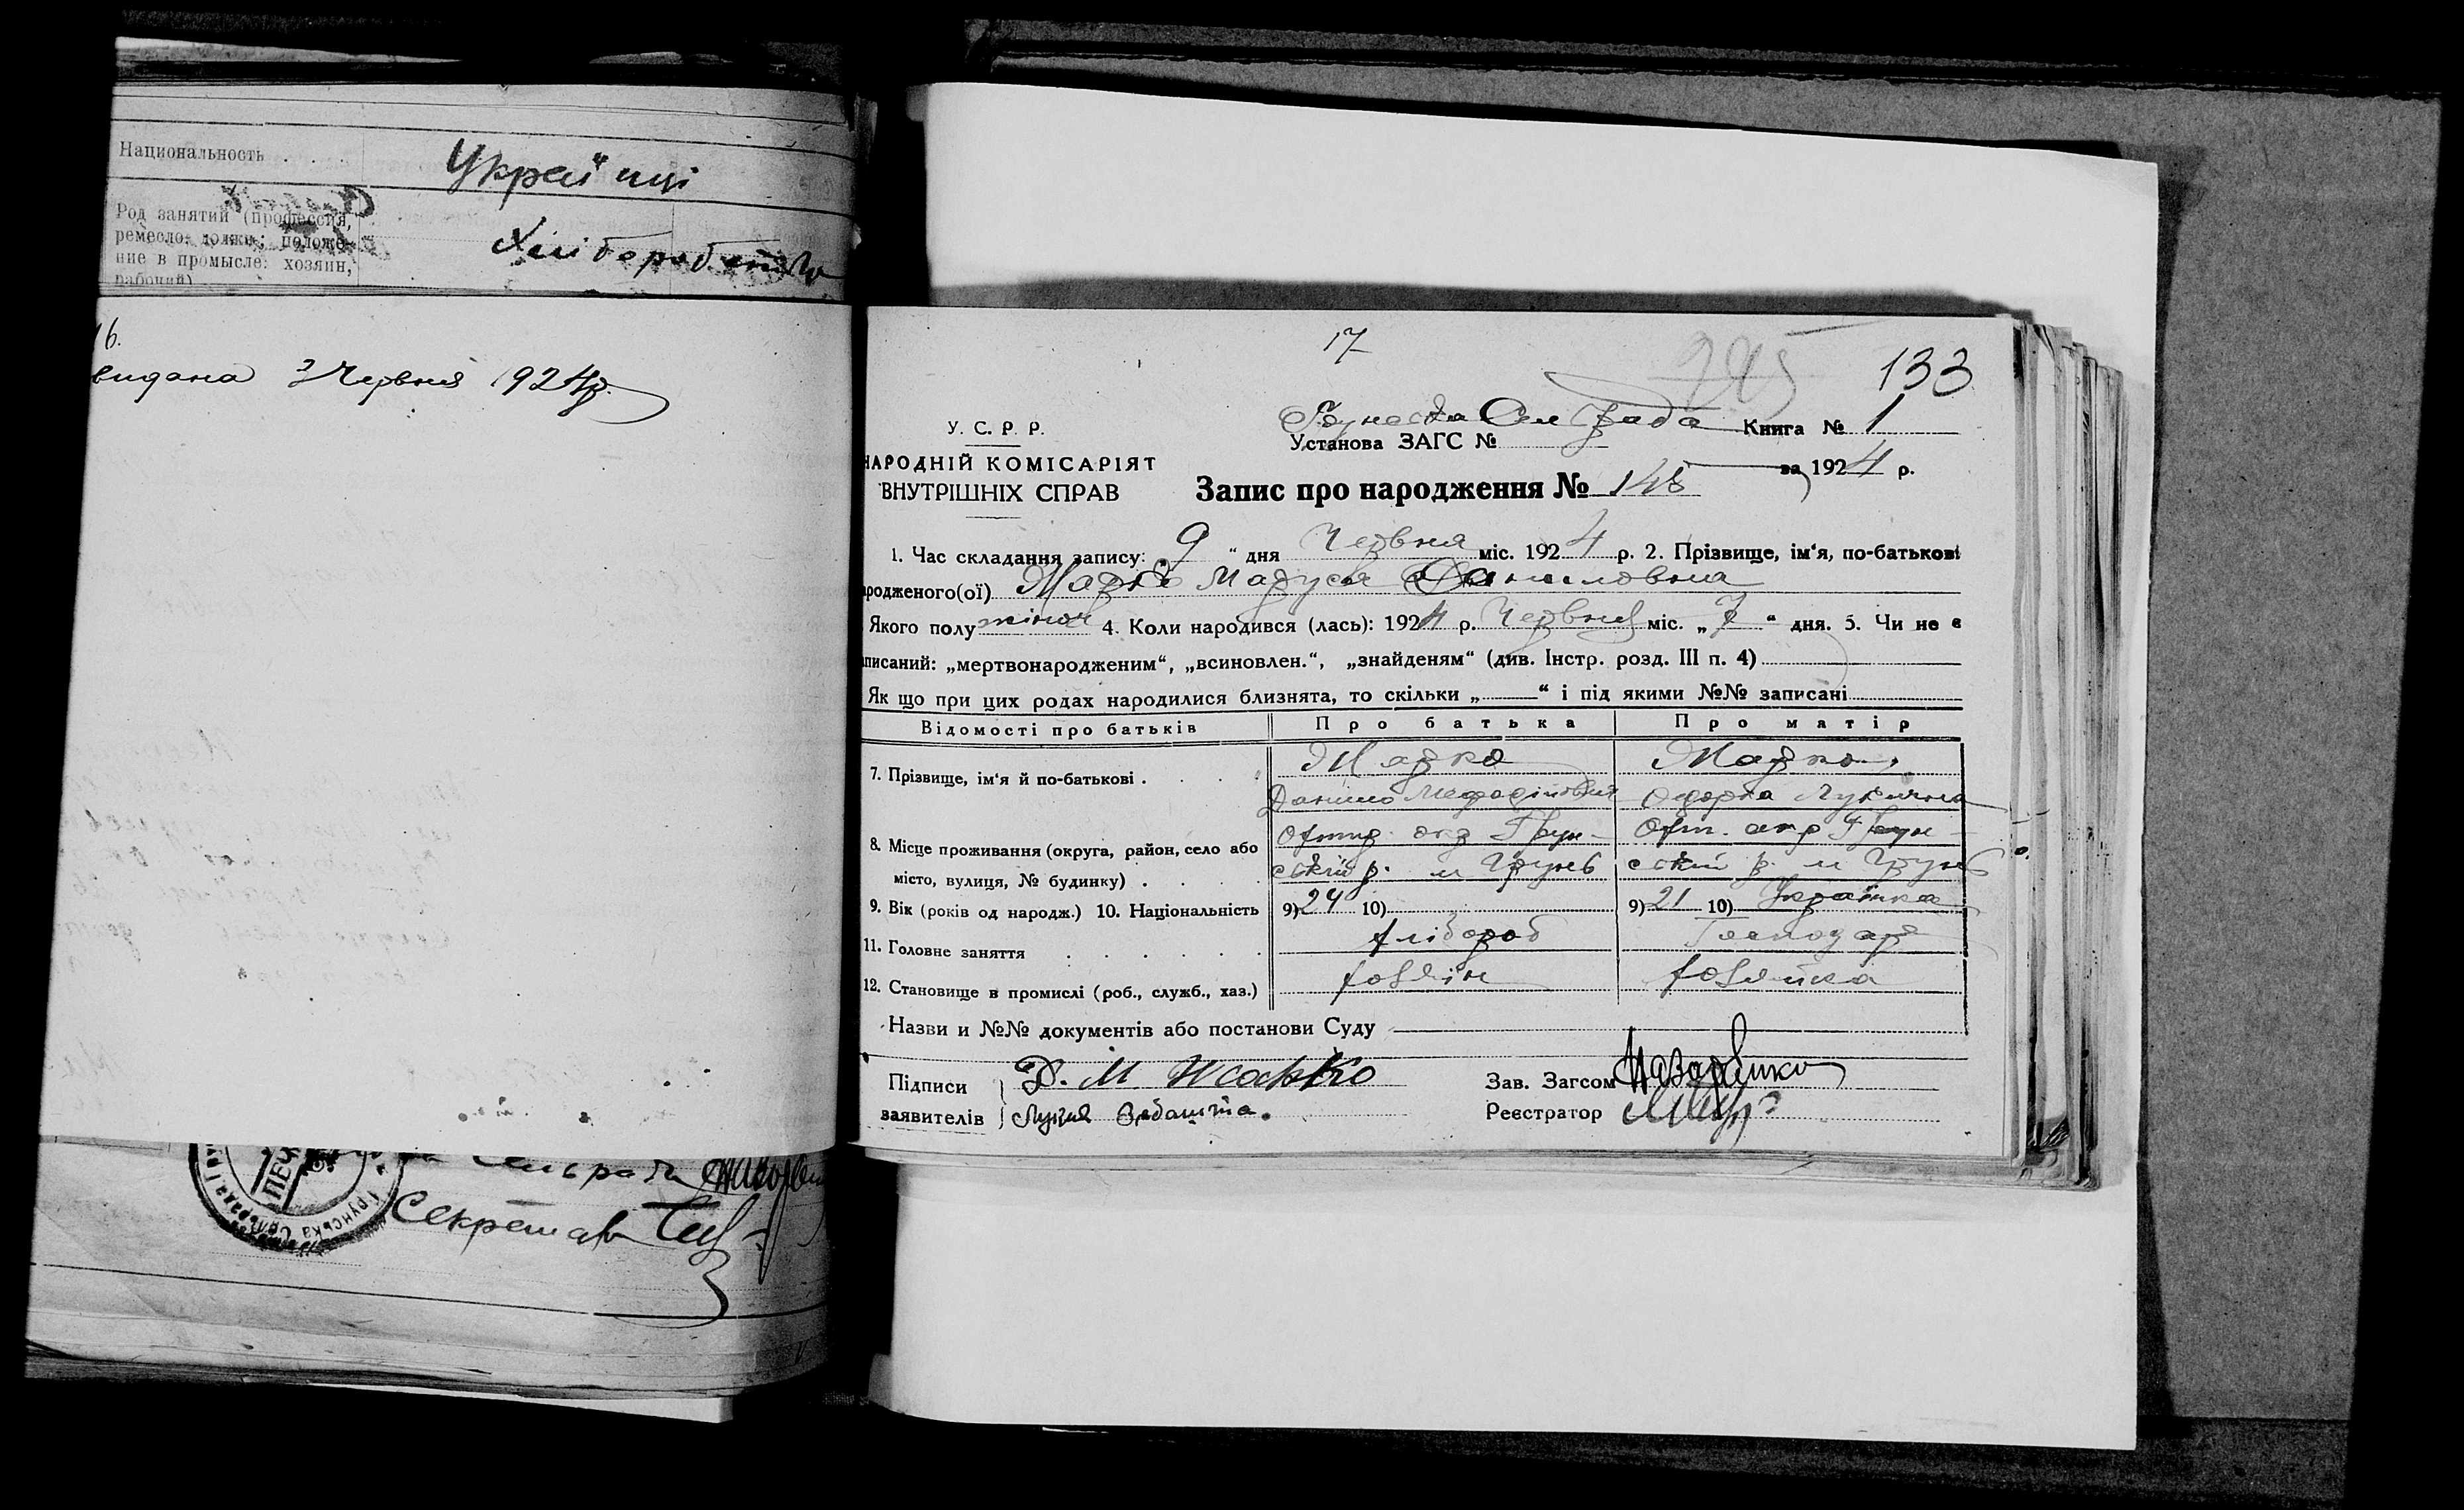 Национальность . . .
Україці
Род занятий (профессия,
ремесло, должн.; положе-
ние в промысле: хозяин,
рабочий)
Хліборобство
16.
видана 3 Червня 1924 р.
Сельрада
Секретар
ПЕЧ
Грунська Сельрада
17
295
133
У. С. Р. Р.
НАРОДНІЙ КОМІСАРІЯТ
ВНУТРІШНІХ СПРАВ
Грунська Сел Рада Книга № 1
Установа ЗАГС №
за 1924 р.
Запис про народження № 148
1. Час складання запису: 9 " дня Червня міс. 1924 р. 2. Прізвище, ім'я, по-батькові
родженого(ої) Маруся Даниловна
Якого полу жіноч 4. Коли народився (лась): 1924 р. Червня міс. „ 7 " дня. 5. Чи не є
писаний: „мертвонародженим", „всиновлен.", „знайденям" (див. Інстр. розд. III п. 4)
Як що при цих родах народилися близнята, то скільки „ " і під якими №№ записані
Відомості про батьків Про батька Про матір
7. Прізвище, ім'я й по-батькові . . . .
Данило Мефодійович
8. Місце проживання (округа, район, село або
місто, вулиця, № будинку) . . . .
Охтир. окр Грун-
ський р. м Грунь
Охт. окр Грун-
ський р. м Грунь
9. Вік (років од народж.) 10. Національність 9) 24 10) 9) 21 10) Українка
11. Головне заняття . . . . . . хлібороб Господар
12. Становище в промислі (роб., служб., хаз.) хозяїн хозяйка
Назви и №№ документів або постанови Суду
Підписи Д. М.
заявителів Лукия
Зав. Загсом
Реєстратор